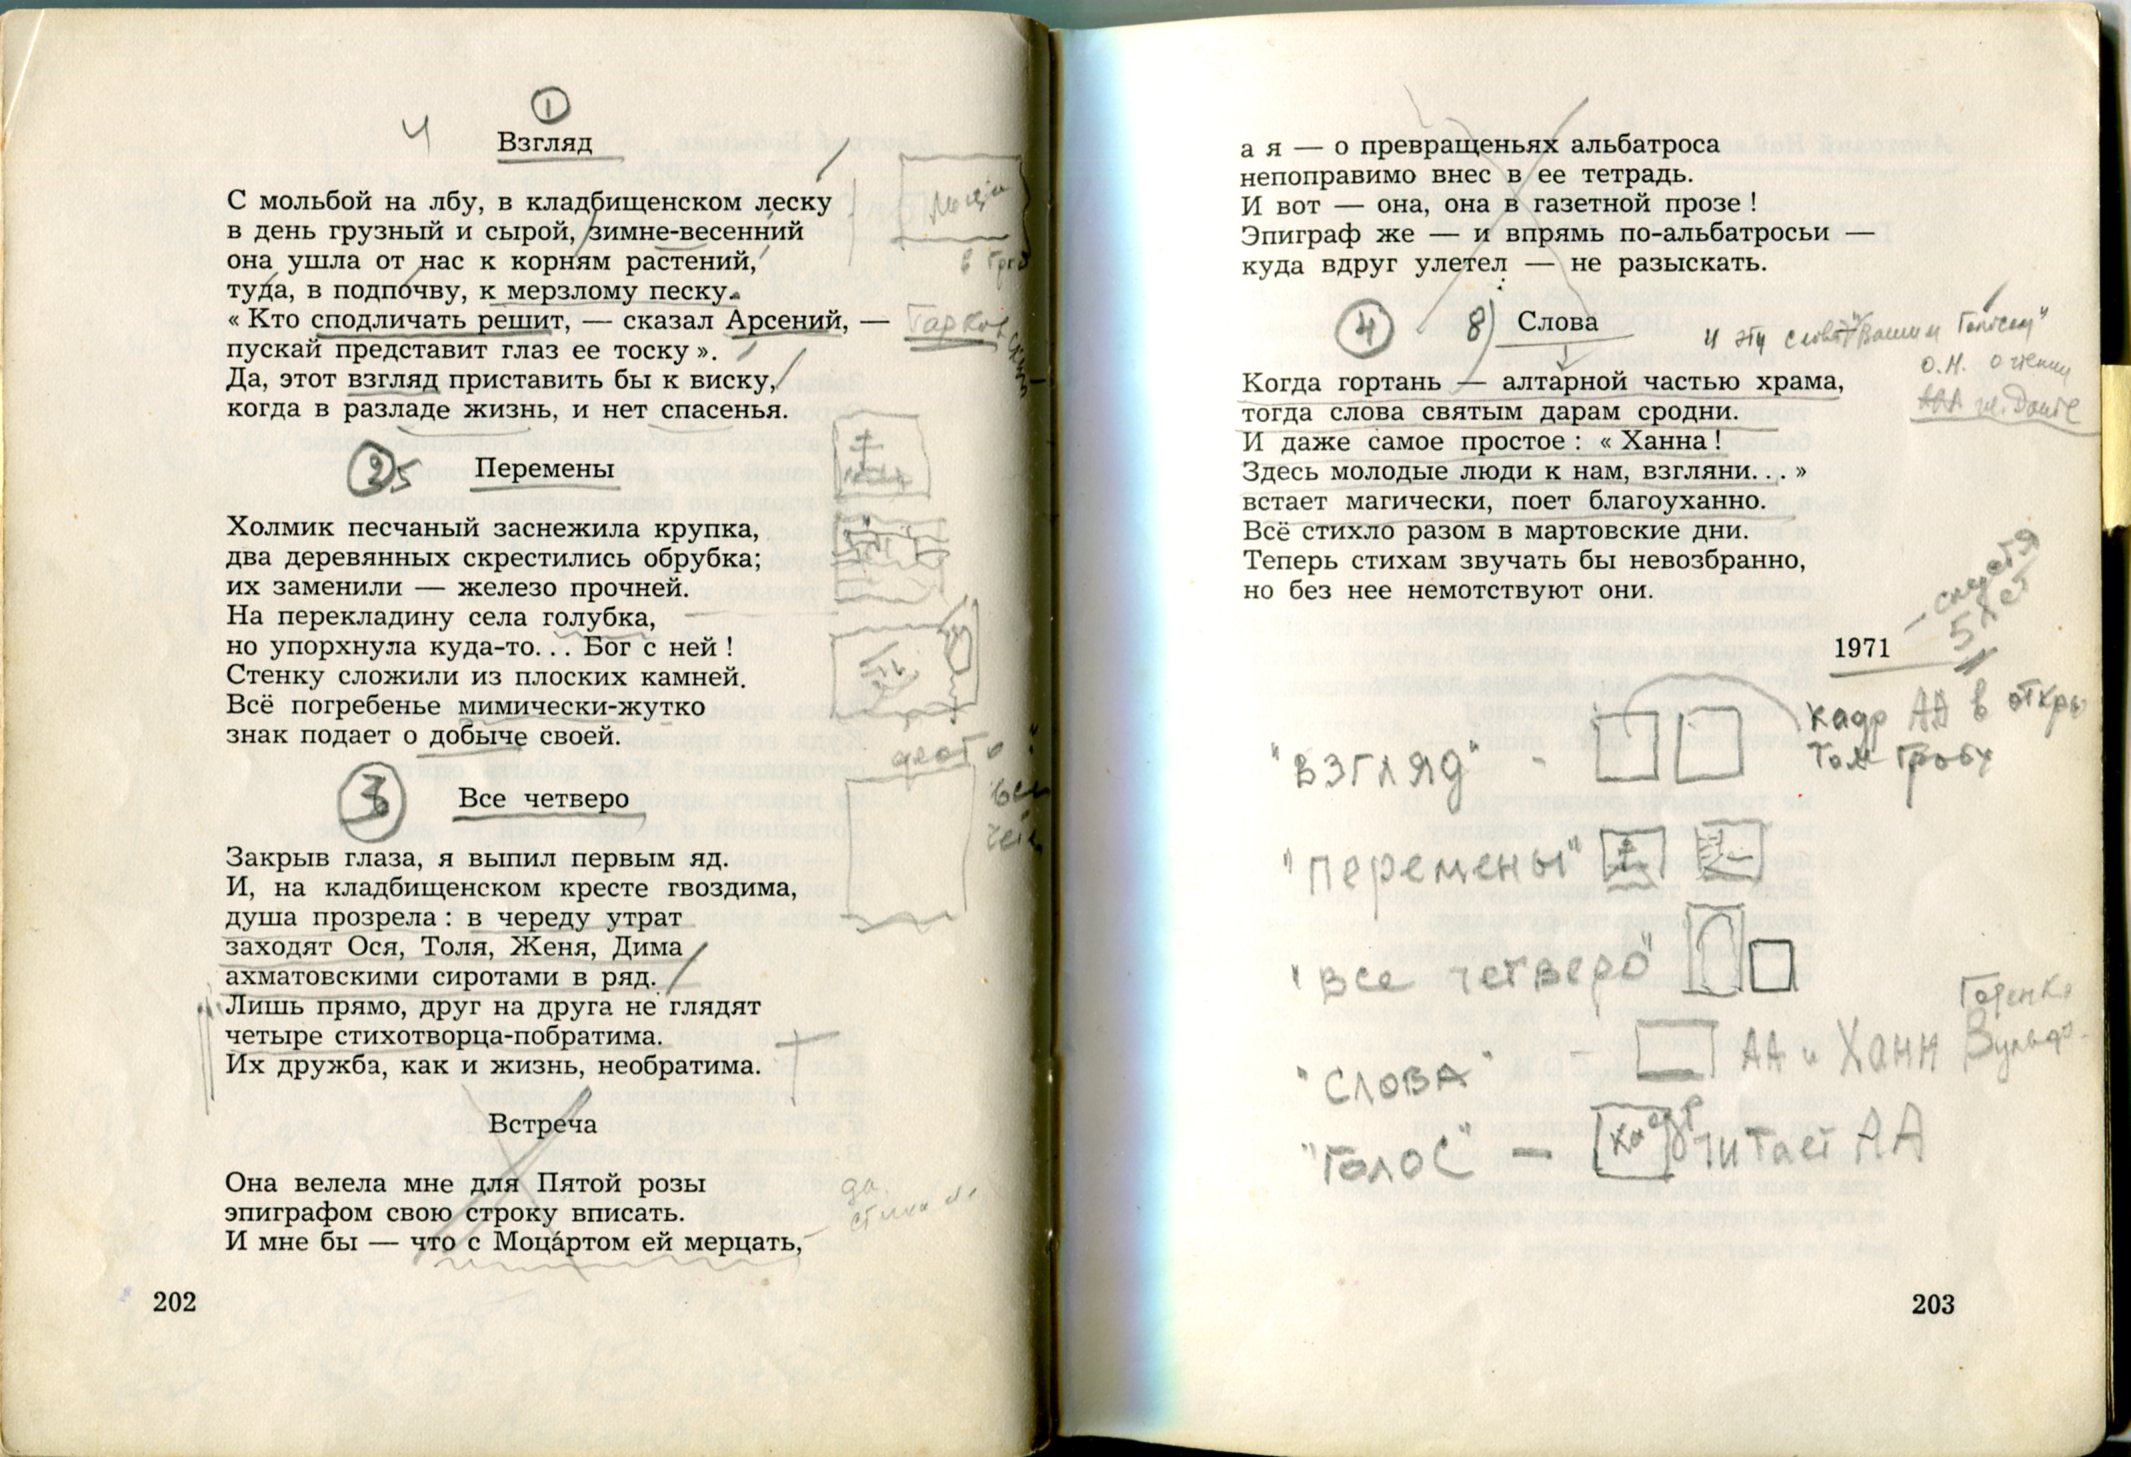 1
4
Взгляд
С мольбой на лбу, в кладбищенском леску
в день грузный и сырой, зимне-весенний
она ушла от нас к корням растений,
туда, в подпочву, к мерзлому песку.
« Кто сподличать решит, — сказал Арсений, —
пускай представит глаз ее тоску ».
Да, этот взгляд приставить бы к виску,
когда в разладе жизнь, и нет спасенья.
в гроб
Тарковский
2 5
Перемены
Холмик песчаный заснежила крупка,
два деревянных скрестились обрубка;
их заменили — железо прочней.
На перекладину села голубка,
но упорхнула куда-то... Бог с ней !
Стенку сложили из плоских камней.
Всё погребенье мимически-жутко
знак подает о добыче своей.
фото
все
3
Все четверо
Закрыв глаза, я выпил первым яд.
И, на кладбищенском кресте гвоздима,
душа прозрела : в череду утрат
заходят Ося, Толя, Женя, Дима
ахматовскими сиротами в ряд.
Лишь прямо, друг на друга не глядят
четыре стихотворца-побратима.
Их дружба, как и жизнь, необратима.
Встреча
Она велела мне для Пятой розы
эпиграфом свою строку вписать.
И мне бы — что с Моца́ртом ей мерцать,
да
202
а я — о превращеньях альбатроса
непоправимо внес в ее тетрадь.
И вот — она, она в газетной прозе !
Эпиграф же — и впрямь по-альбатросьи —
куда вдруг улетел — не разыскать.
4
8)
Слова
и эти слова "Вашим голосом"
о.н.
Данте
Когда гортань — алтарной частью храма,
тогда слова святым дарам сродни.
И даже самое простое : « Ханна !
Здесь молодые люди к нам, взгляни... »
встает магически, поет благоуханно.
Всё стихло разом в мартовские дни.
Теперь стихам звучать бы невозбранно,
но без нее немотствуют они.
спустя
5 лет
1971
"Взгляд" - кадр АА в откры
том гробу
"Перемены"
"Все четверо"
"Слова" - АА и Ханн
Горенко
Вульф
"Голос" - Кадр читает АА
203